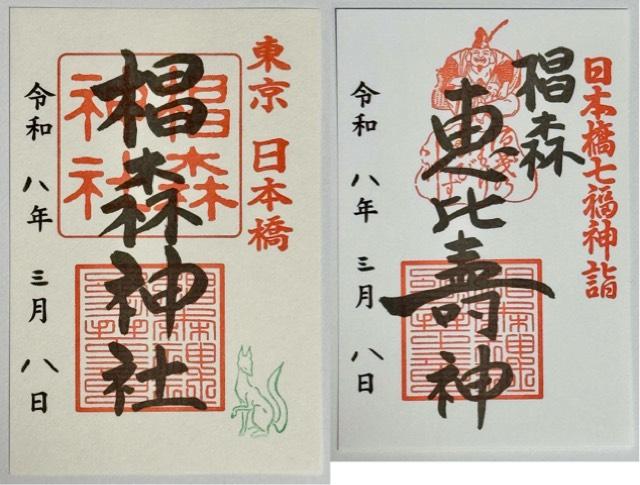 東京 日本橋
椙森神社
椙森神社
令和 八年 三月 八日
日本橋七福神詣
椙森
恵比寿神
令和 八年 三月 八日